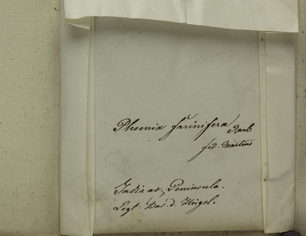 Phoenix farinifera Roxb
fid. Martius
India or. Peninsula.
Legt. Bar. d. Hügel.